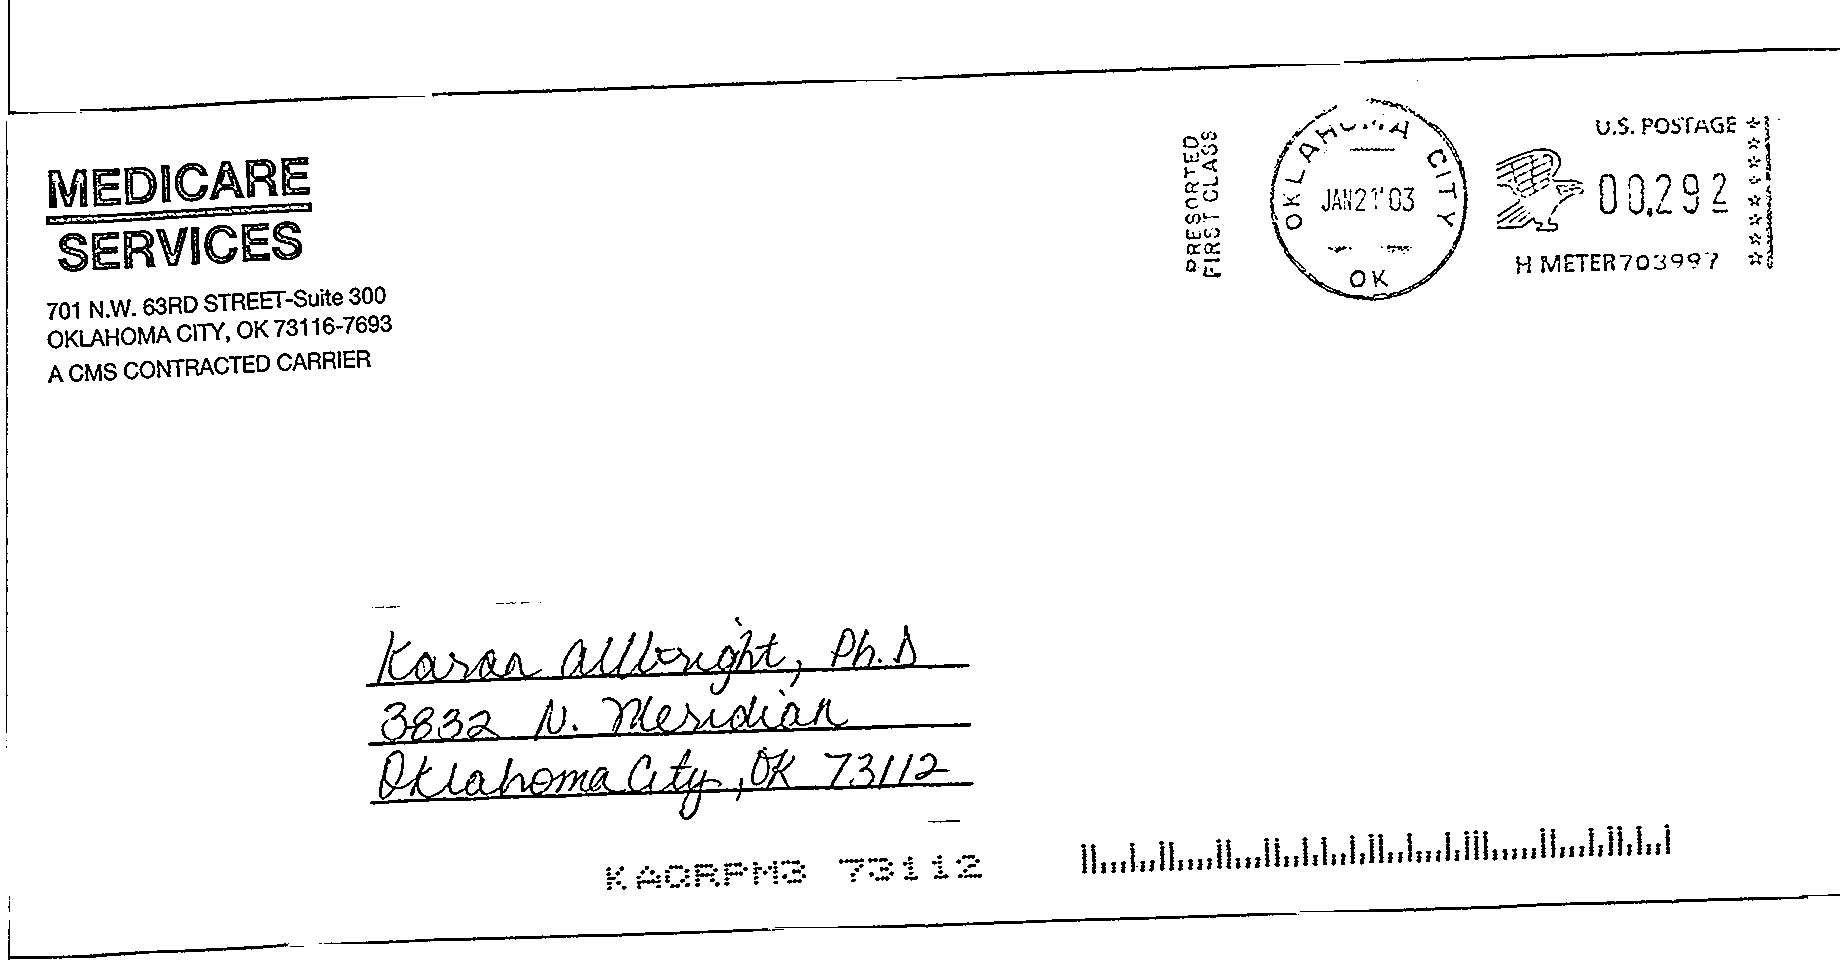 MEDICARE
SERVICES
701 N.W. 63RD STREET-Suite 300
OKLAHOMA CITY, OK 73116-7693
A CMS CONTRACTED CARRIER
PRESORTED
FIRST CLASS
OKLAHOMA CITY
JAN 21 '03
OK
U.S. POSTAGE
00.292
H METER 703997
Karan Allbright, Ph.D
3832 N. Meridian
Oklahoma City, OK 73112
KAQRPM3 73112